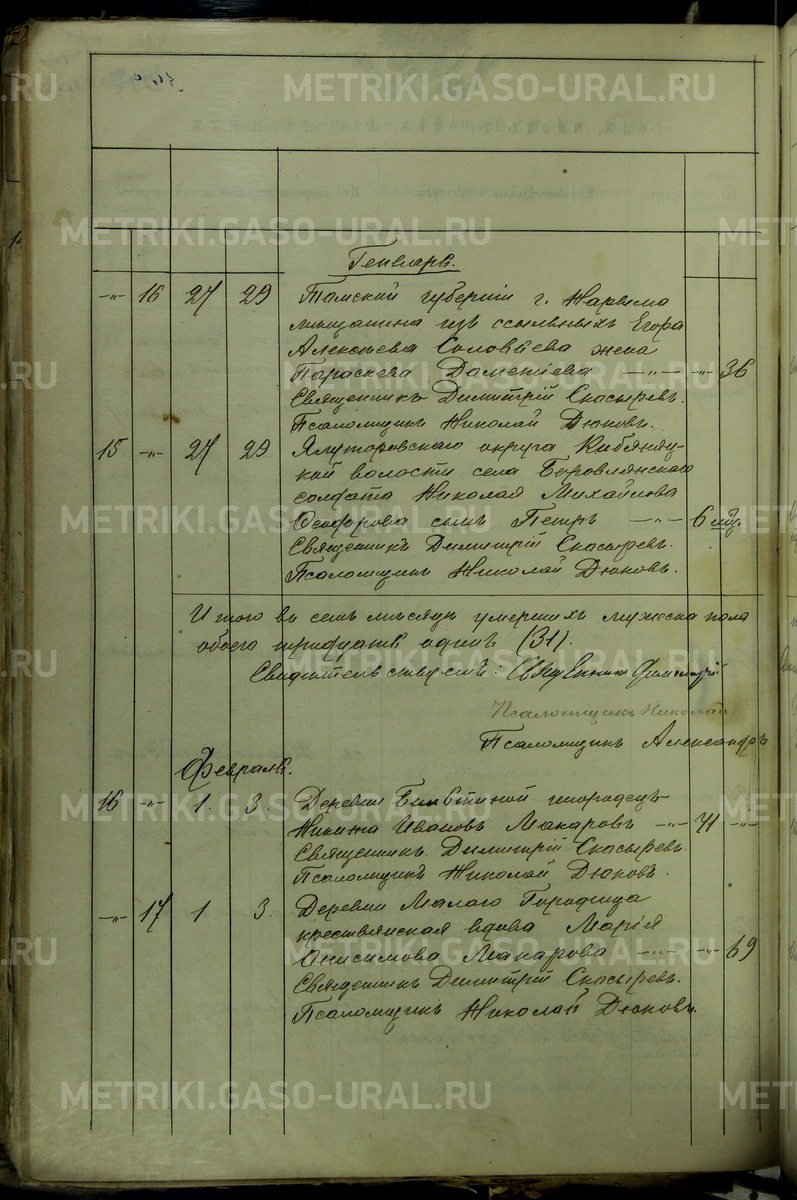 Генварь.
-"- 16 27 29 Томской губернии г. Нарыма
мещанина изъ ссыльныхъ Егора
Алексѣева Соловьева жена
Параскева Дометіева -"- -"- 36
Священникъ Димитрій Скосыревъ.
Псаломщикъ Николай Дюковъ.
15 -"- 27 29 Ялуторовскаго округа
кой волости села Боровлянскаго
солдата Николая Михайлова
Ѳедорова сынъ Петръ -"- 6 мѣц.
Священникъ Димитрій Скосыревъ.
Псаломщикъ Николай Дюковъ.
Итого въ семъ мѣсяцѣ умершихъ мужеска пола
обоего тридцать одинъ (31).
Свидѣтельствуемъ: Священникъ Димитрій
Псаломщикъ Николай
Псаломщикъ Александръ
Февраль.
16 -"- 1. 3. Деревни инородецъ
Никита Ивановъ Макаровъ -"- 71 -"-
Священникъ Димитрій Скосыревъ.
Псаломщикъ Николай Дюковъ.
-"- 17 1 3. Деревни Малаго Городища
крестьянская вдова Марія
Онисимова Макарова -"- -"- 69
Священникъ Димитрій Скосыревъ.
Псаломщикъ Николай Дюковъ.
METRIKI.GASO-URAL.RU